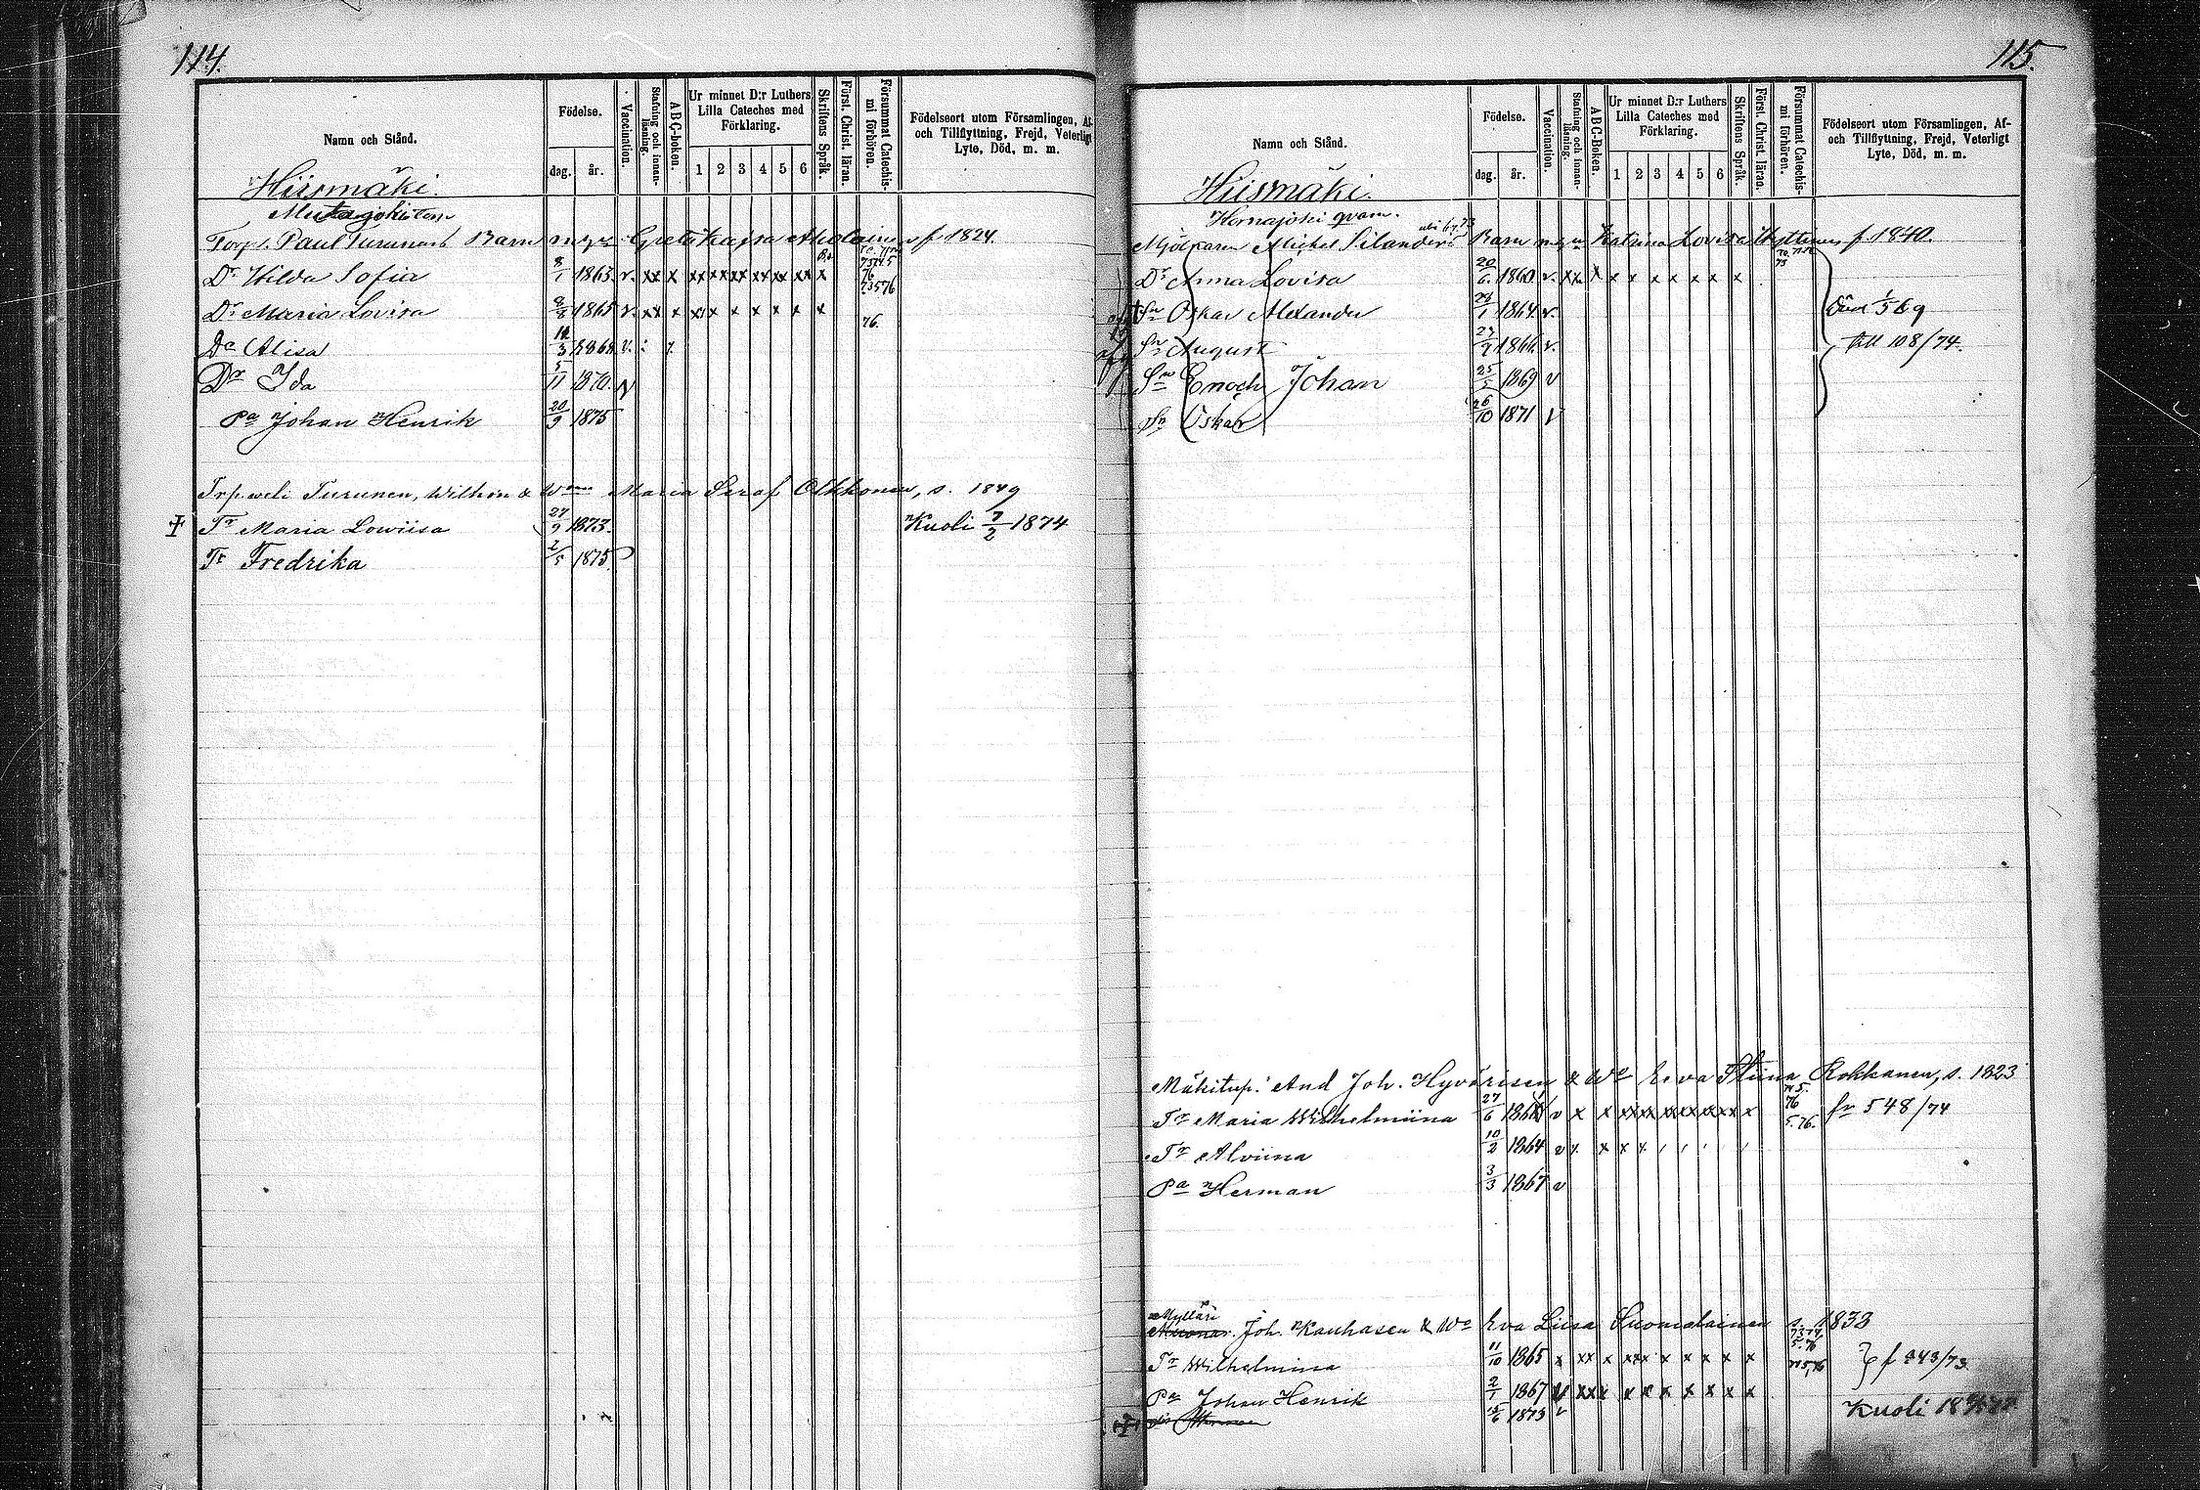 114.
Namn och Stånd.
Födelse.
dag.
år.
Vaccination.
Stafning och innan-
läsning.
A B C-boken.
Ur minnet D:r Luthers
Lilla Cateches med
Förklaring.
1 2 3 4 5 6
Skriftens Språk.
Först. Christ. läran.
Försummat Catechis-
mi förhören.
Födelseort utom Församlingen, Af-
och Tillflyttning, Frejd, Veterligt
Lyte, Död, m. m.
Hiismäki.
Torp. Paul Turunens Barn m. Greta Kajsa f. 1824.
Dr Hilda Sofia 8/1 1863 v. xx x xx xx xx xx xx xx x
Dr Maria Lovisa 1865 v. xx x x x x x x x x 76.
Da Alisa 1868 v.
Dr Ida 5/11 1870. v
Pa Johan Henrik 20/9 1875
Turunen, & Maria Seraf Olkkonen, s. 1849
Tr Maria Lowiisa 27/9 1873. Kuoli 7/2 1874
Tr Fredrika 2/5 1875
115.
Namn och Stånd.
Födelse.
dag.
år.
Vaccination.
Stafning och innan-
läsning.
A B C-Boken.
Ur minnet D:r Luthers
Lilla Cateches med
Förklaring.
1 2 3 4 5 6
Skriftens Språk.
Först. Christ. läran.
Försummat Catechis-
mi förhören.
Födelseort utom Församlingen, Af-
och Tillflyttning, Frejd, Veterligt
Lyte, Död, m. m.
Hiismäki.
Hornajoki qvarn.
Mjölnaren Michel Silanders Barn m. Katrina Lovisa Hyttinen f. 1840.
Dr Anna Lovisa 20/6 1860 v. xx x x x x x x x x
Sn Oskar Alexander 1864 v. Död 1/5 69
Sn August 1866 v. till 108/74.
Sn Enoch Johan 25/5 1869 v
Sn Oskar 26/10 1871 v
Mäkitup. And Joh. Hyvärisen & Wo Eeva Stiina Rokkanen, s. 1823
Tr Maria Wilhelmiina 27/6 v x x xx xx xx xx xx xx x 76 fr 548/74
Tr Alviina 10/2 1864 v x x x x
Pa Herman 3/3 1867 v
Mylläri
Joh. Kauhasen & Wo Eva Liisa Suomalainen s. 1833
Tr Wilhelmina 11/10 1865 x xx x xx x x x x x x
Pa Johan Henrik 2/1 1867 v xx x x x x x x x x
1873 v Kuoli